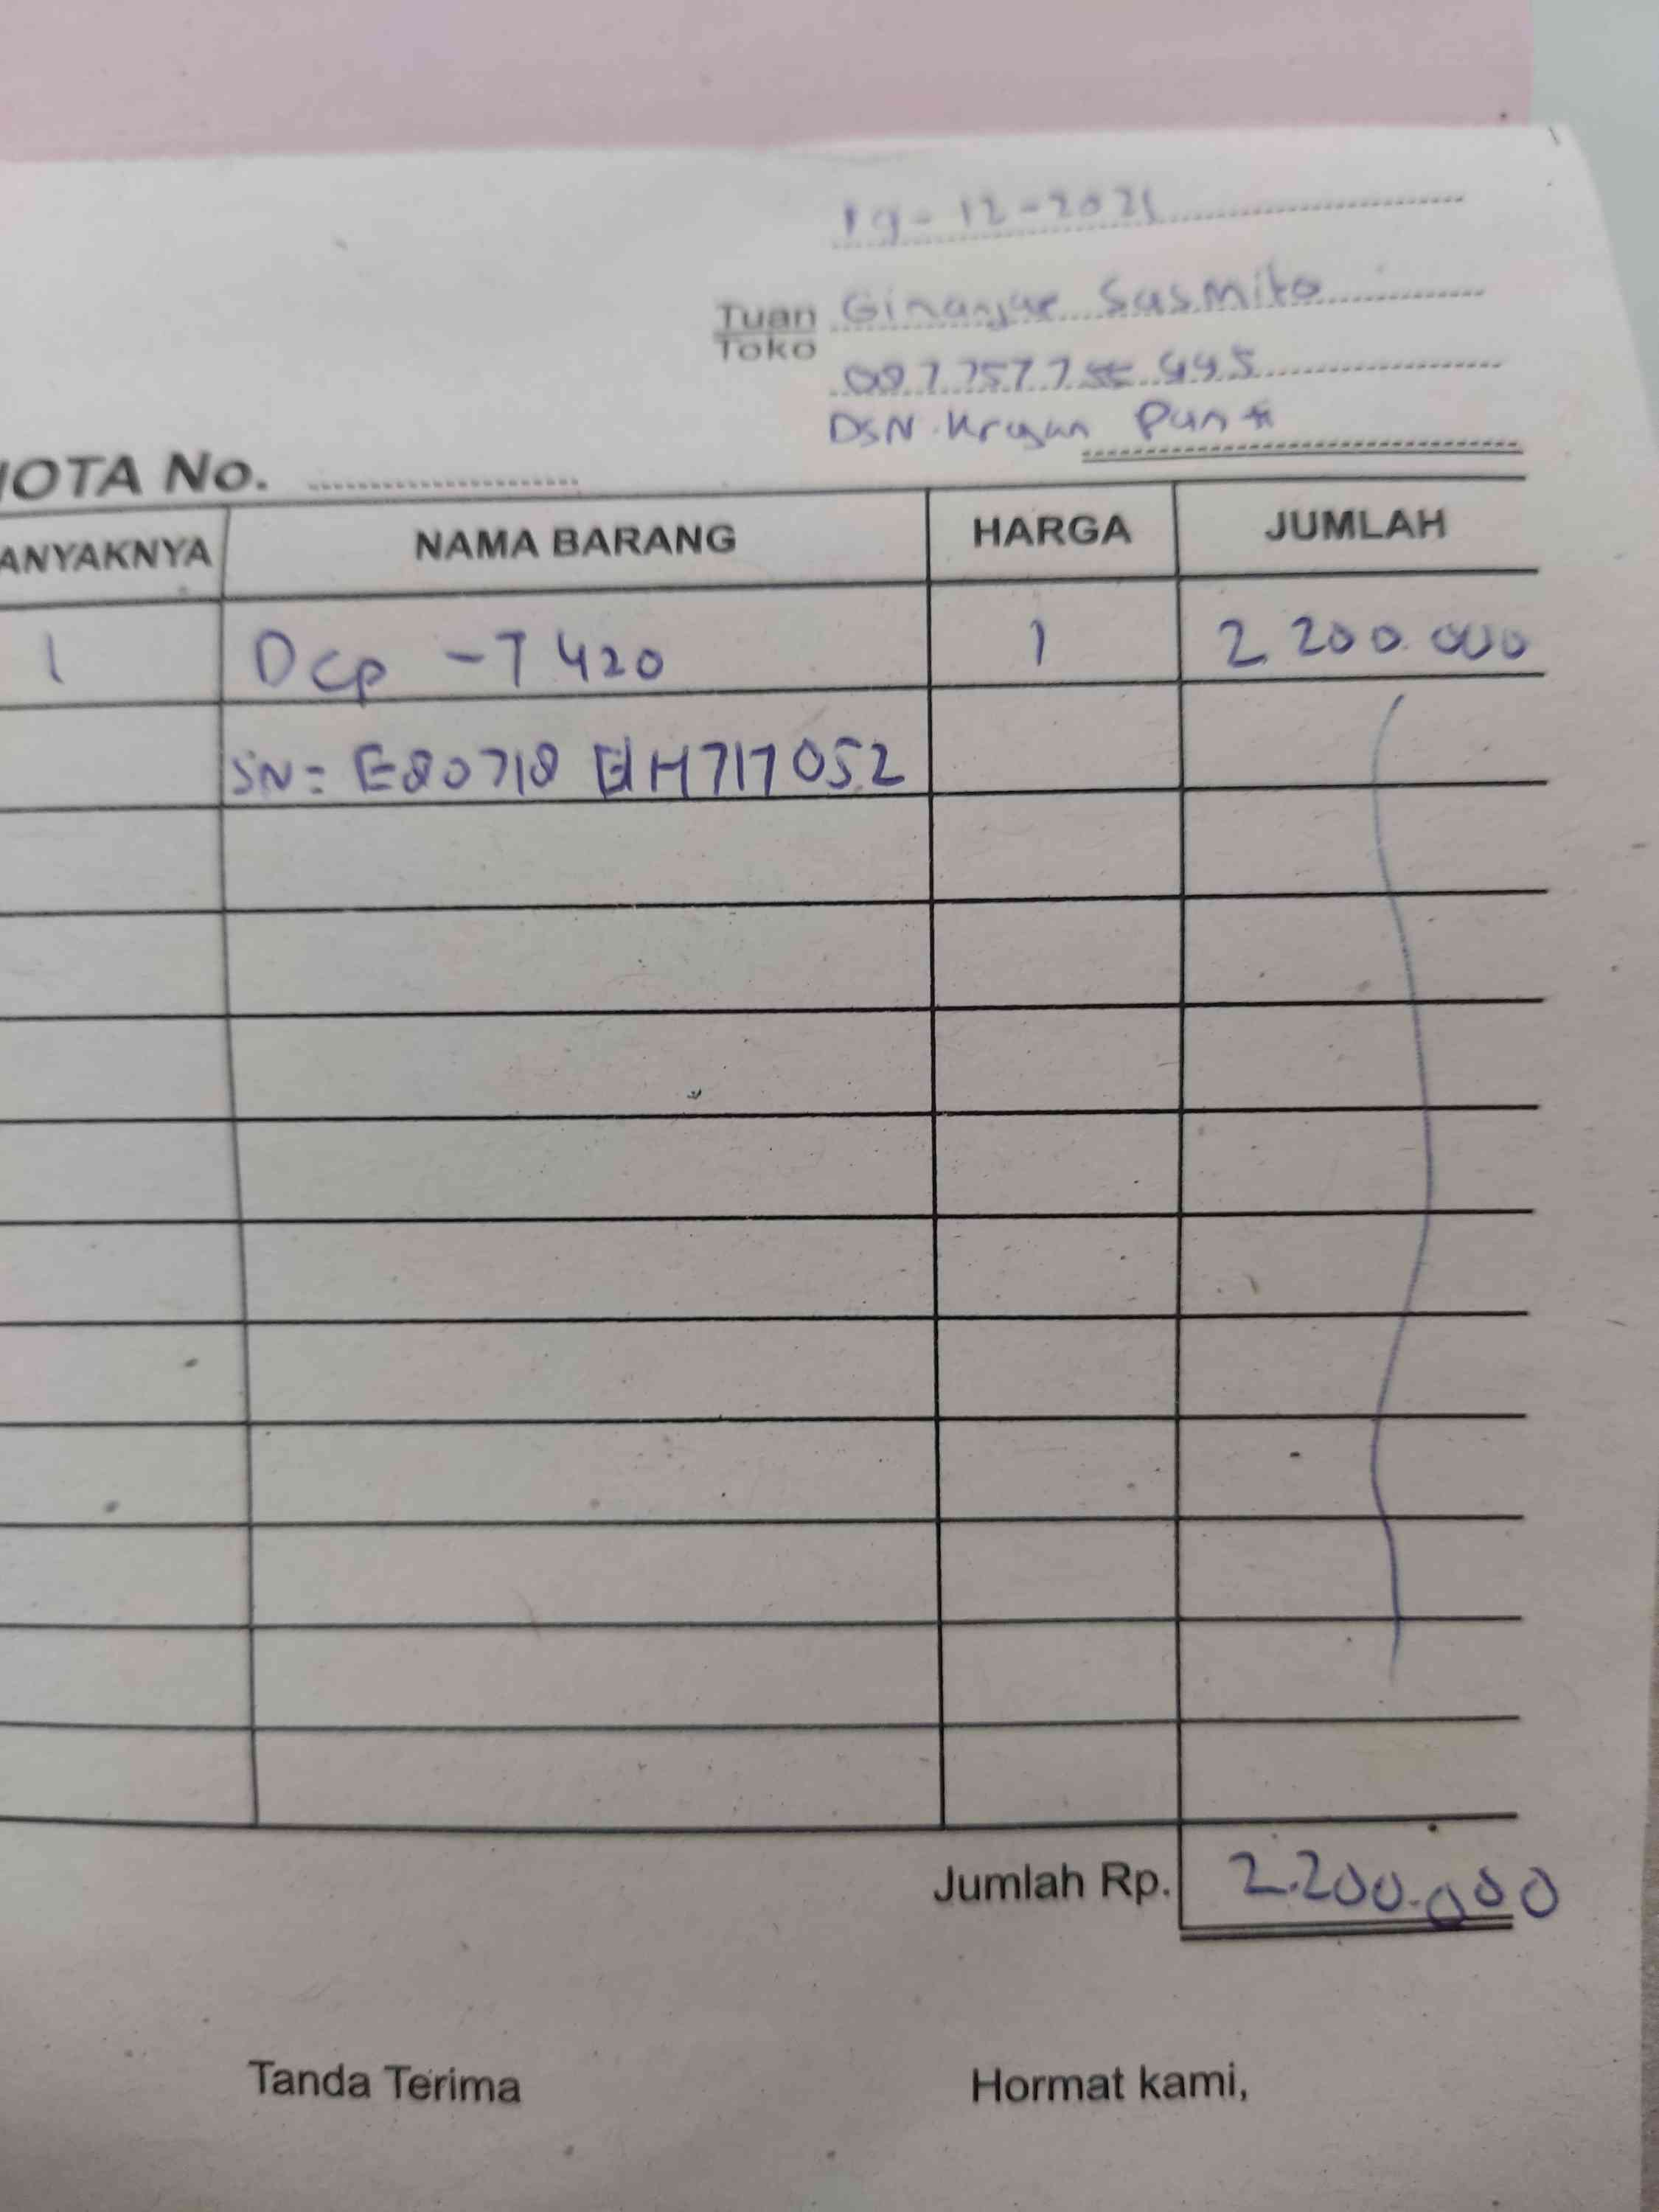 19-12-2025
Tuan Ginanjar Sasmito
Toko
DSN. Krajan
NOTA No.
ANYAKNYA NAMA BARANG HARGA JUMLAH
1 Dcp -T420 1 2.200.000
SN=
Jumlah Rp. 2.200.000
Tanda Terima Hormat kami,